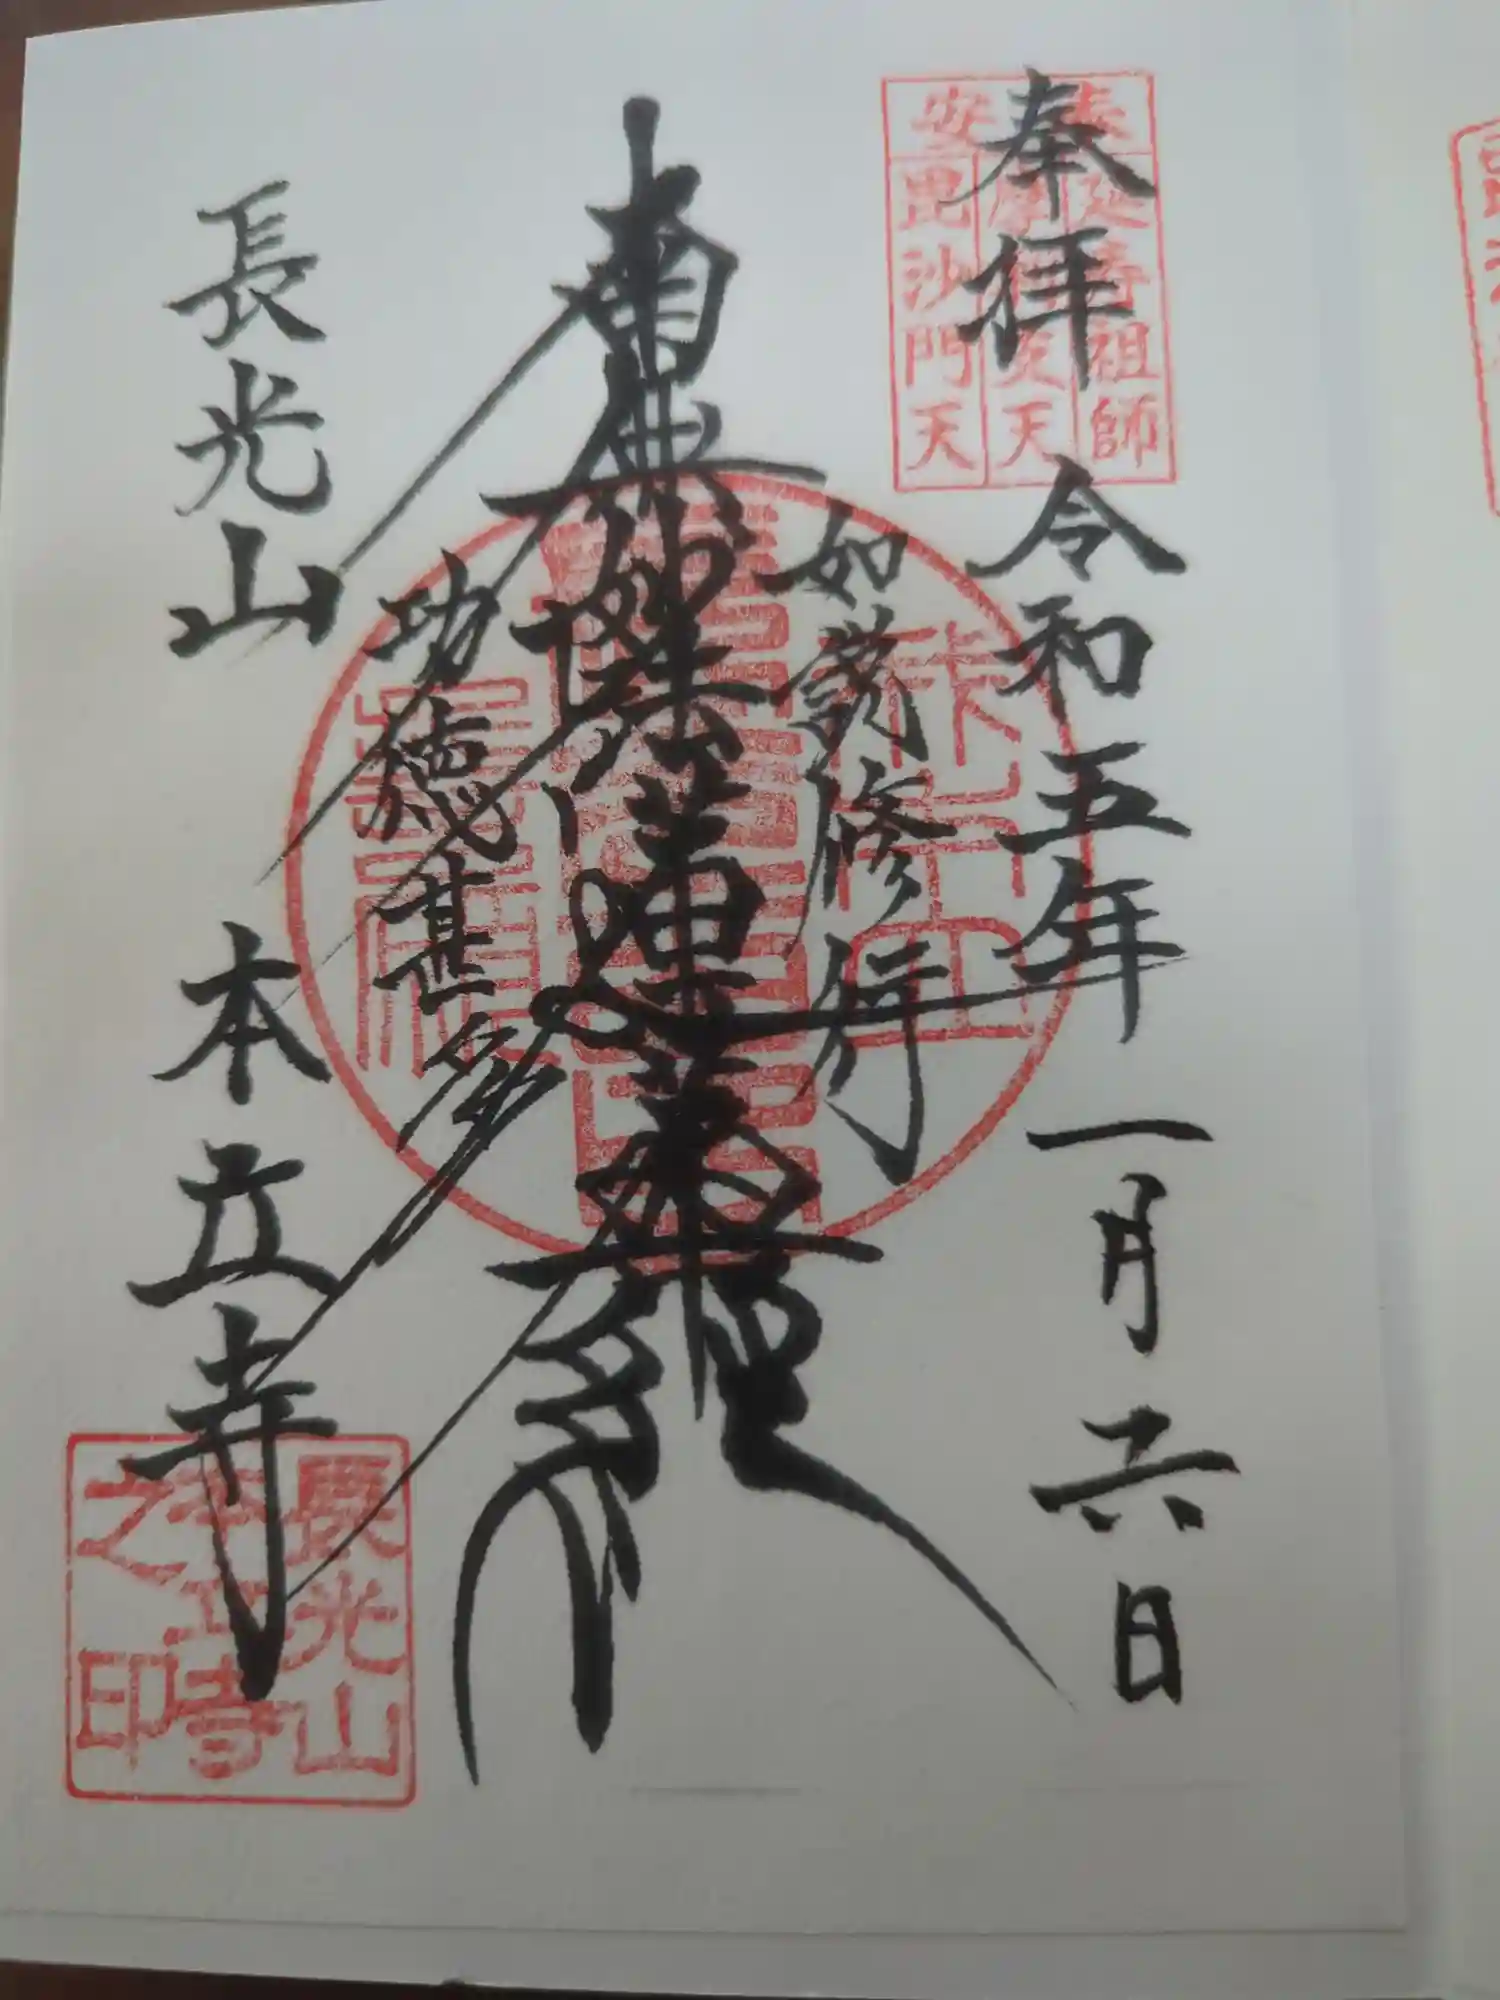 奉拝
令和五年 一月 六日
安
延寿祖師
天
毘沙門天
如説修行
南無妙法蓮華経
功徳甚多
長光山 本立寺
長光山
本立寺
之印